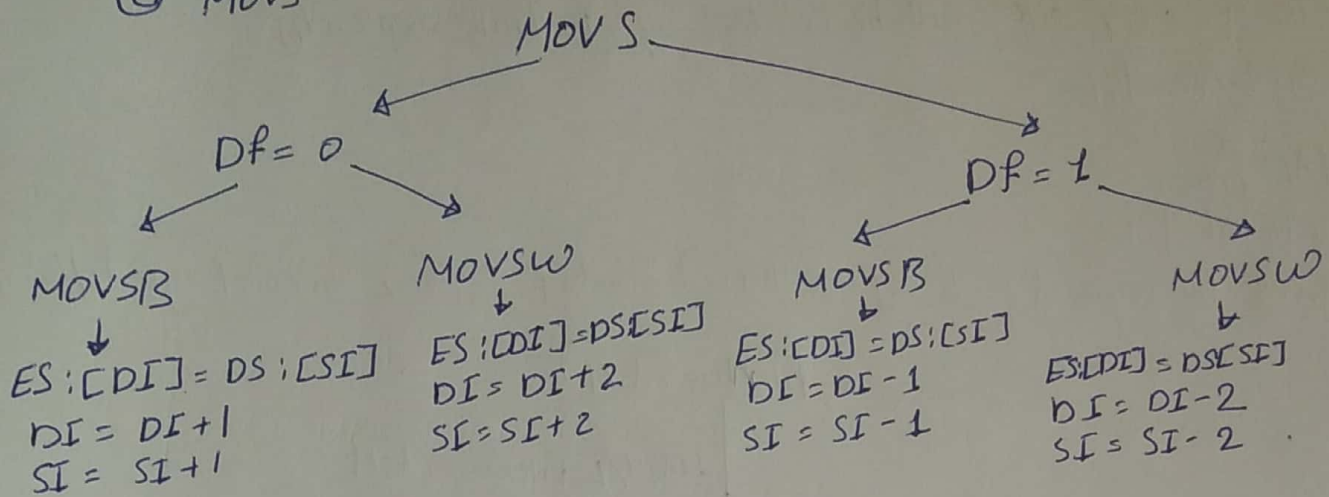 MOVS
MOV S
Df = 0
Df = 1
MOVSB
ES:[DI] = DS:[SI]
DI = DI+1
SI = SI+1
MOVSW
ES:[DI]=DS[SI]
DI = DI+2
SI = SI+2
MOVSB
ES:[DI] = DS:[SI]
DI = DI-1
SI = SI-1
MOVSW
ES:[DI] = DS[SI]
DI = DI-2
SI = SI-2.